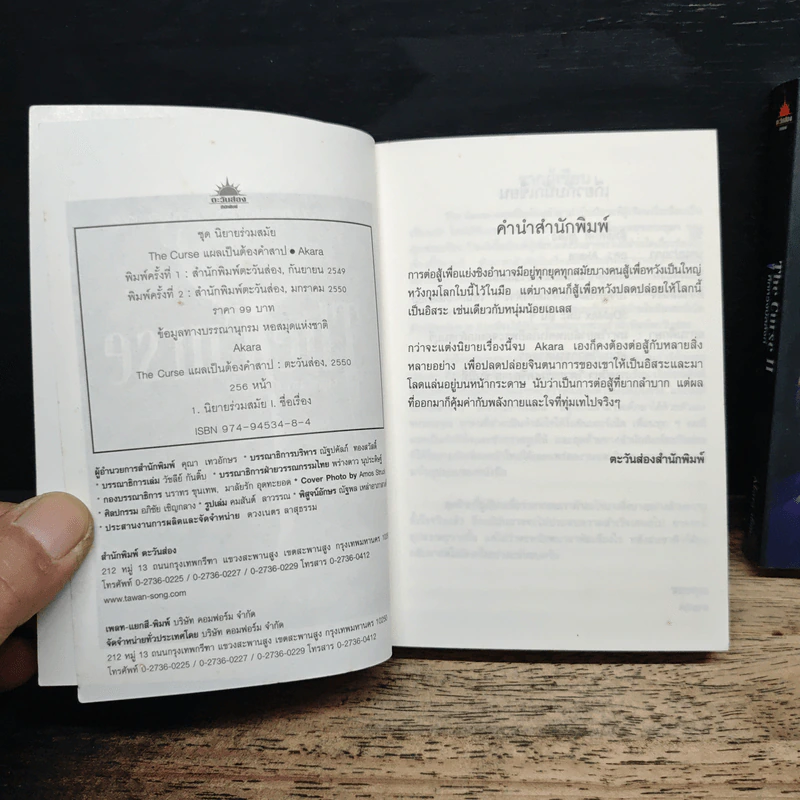 ตะวันส่อง
ชุด นิยายร่วมสมัย
The Curse แผลเป็นต้องคำสาป ● Akara
พิมพ์ครั้งที่ 1 : สำนักพิมพ์ตะวันส่อง, กันยายน 2549
พิมพ์ครั้งที่ 2 : สำนักพิมพ์ตะวันส่อง, มกราคม 2550
ราคา 99 บาท
ข้อมูลทางบรรณานุกรม หอสมุดแห่งชาติ
Akara
The Curse แผลเป็นต้องคำสาป : ตะวันส่อง, 2550
256 หน้า
1. นิยายร่วมสมัย I. ชื่อเรื่อง
ISBN 974-94534-8-4
ผู้อำนวยการสำนักพิมพ์ คุณา เทวอักษร • บรรณาธิการบริหาร ณัฐปคัลภ์ ทองสวัสดิ์
• บรรณาธิการเล่ม วัชลีย์ กันติ๊บ • บรรณาธิการฝ่ายวรรณกรรมไทย พร่างดาว นุประดิษฐ์
• กองบรรณาธิการ นราทร ขุนเทพ, มาลัยรัก อุดทะยอด • Cover Photo by Amos
• ศิลปกรรม อภิชัย เชิญกลาง • รูปเล่ม คมสันต์ ลาวรรณ • พิสูจน์อักษร ณัฐพล
• ประสานงานการผลิตและจัดจำหน่าย ดวงเนตร ลาสุธรรม
สำนักพิมพ์ ตะวันส่อง
212 หมู่ 13 ถนนกรุงเทพกรีฑา แขวงสะพานสูง เขตสะพานสูง กรุงเทพมหานคร 10250
โทรศัพท์ 0-2736-0225 / 0-2736-0227 / 0-2729-0229 โทรสาร 0-2736-0412
www.tawan-song.com
เพลท-แยกสี-พิมพ์ บริษัท คอมฟอร์ม จำกัด
จัดจำหน่ายทั่วประเทศโดย บริษัท คอมฟอร์ม จำกัด
212 หมู่ 13 ถนนกรุงเทพกรีฑา แขวงสะพานสูง เขตสะพานสูง กรุงเทพมหานคร 10250
โทรศัพท์ 0-2736-0225 / 0-2736-0227 / 0-2729-0229 โทรสาร 0-2736-0412
คำนำสำนักพิมพ์
การต่อสู้เพื่อแย่งชิงอำนาจมีอยู่ทุกยุคทุกสมัยบางคนสู้เพื่อหวังเป็นใหญ่
หวังกุมโลกใบนี้ไว้ในมือ แต่บางคนก็สู้เพื่อหวังปลดปล่อยให้โลกนี้
เป็นอิสระ เช่นเดียวกับหนุ่มน้อยเอเลส
กว่าจะแต่งนิยายเรื่องนี้จบ Akara เองก็คงต้องต่อสู้กับหลายสิ่ง
หลายอย่าง เพื่อปลดปล่อยจินตนาการของเขาให้เป็นอิสระและมา
โลดแล่นอยู่บนหน้ากระดาษ นับว่าเป็นการต่อสู้ที่ยากลำบาก แต่ผล
ที่ออกมาก็คุ้มค่ากับพลังกายและใจที่ทุ่มเทไปจริงๆ
ตะวันส่องสำนักพิมพ์
The Curse II